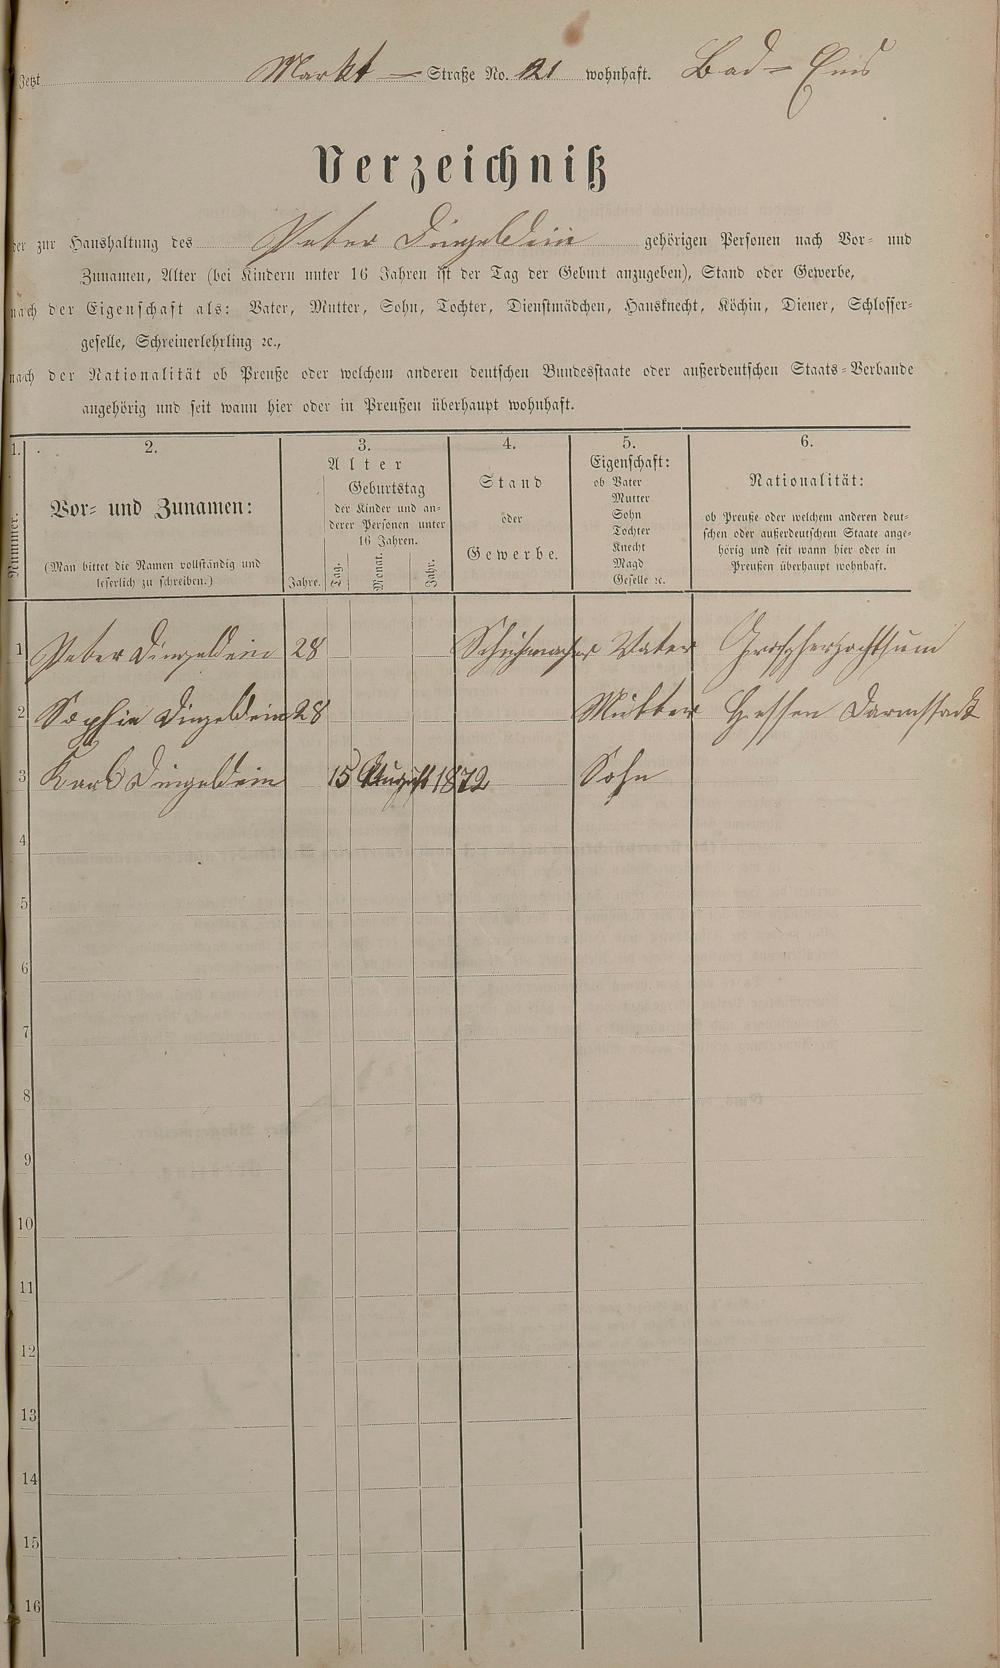 Jetzt Markt – Straße No. 21 wohnhaft. Bad-Ems
Verzeichniß
der zur Haushaltung des Peter Dingeldein gehörigen Personen nach Vor- und
Zunamen, Alter (bei Kindern unter 16 Jahren ist der Tag der Geburt anzugeben), Stand oder Gewerbe,
nach der Eigenschaft als: Vater, Mutter, Sohn, Tochter, Dienstmädchen, Hausknecht, Köchin, Diener, Schlosser-
geselle, Schreinerlehrling ꝛc.,
nach der Nationalität ob Preuße oder welchem anderen deutschen Bundesstaate oder außerdeutschen Staats-Verbande
angehörig und seit wann hier oder in Preußen überhaupt wohnhaft.
1.
Nummer.
2.
Vor- und Zunamen:
(Man bittet die Namen vollständig und
leserlich zu schreiben.)
3.
Alter
Jahre.
Geburtstag
der Kinder und an-
derer Personen unter
16 Jahren.
Tag.
Monat.
Jahr.
4.
Stand
oder
Gewerbe.
5.
Eigenschaft:
ob Vater
Mutter
Sohn
Tochter
Knecht
Magd
Geselle ꝛc.
6.
Nationalität:
ob Preuße oder welchem anderen deut-
schen oder außerdeutschem Staate ange-
hörig und seit wann hier oder in
Preußen überhaupt wohnhaft.
1 Peter Dingeldein 28 Schuhmacher Vater Großherzogthum
2 Sophie Dingeldein 28 Mutter Hessen Darmstadt
3 Karl Dingeldein 15 August 1872 Sohn
4
5
6
7
8
9
10
11
12
13
14
15
16